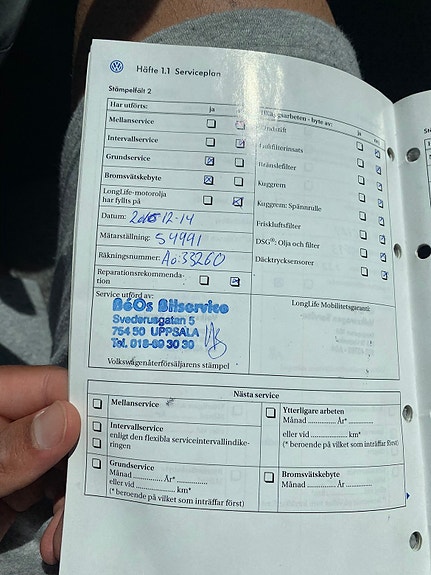 Häfte 1.1 Serviceplan
Stämpelfält 2
Har utförts: ja
Mellanservice
Intervallservice
Grundservice
Bromsvätskebyte
LongLife-motorolja
har fyllts på
Datum: 2015-12-14
Mätarställning: 54991
Räkningsnummer: Ao:33260
Reparationsrekommenda-
tion
Service utförd av:
BéOs Bilservice
Svederusgatan 5
754 50 UPPSALA
Tel. 018-69 30 30
Volkswagenåterförsäljarens stämpel
byte av: ja
Bränslefilter
Kuggrem
Kuggrem: Spännrulle
Friskluftsfilter
DSG®: Olja och filter
Däcktryckssensorer
LongLife Mobilitetsgaranti:
Nästa service
Mellanservice
Intervallservice
enligt den flexibla serviceintervallindike-
ringen
Grundservice
Månad ............ År* ............
eller vid ............ km*
(* beroende på vilket som inträffar först)
Ytterligare arbeten
Månad ............ År* ............
eller vid ............ km*
(* beroende på vilket som inträffar först)
Bromsvätskebyte
Månad ............ År ............